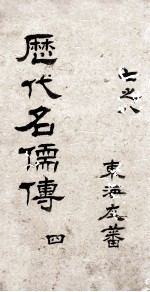 七之八
歷代名儒傳 四
東海底蕃